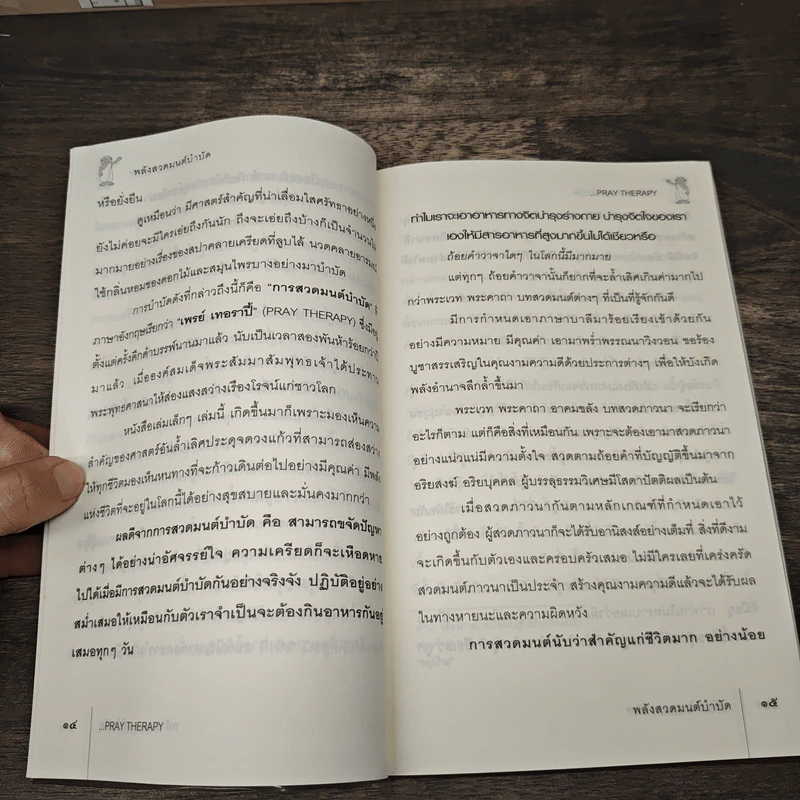 พลังสวดมนต์บำบัด
หรือยั่งยืน
ดูเหมือนว่า มีศาสตร์สำคัญที่น่าเลื่อมใสศรัทธาอย่างหนึ่ง
ยังไม่ค่อยจะมีใครเอ่ยถึงกันนัก ถึงจะเอ่ยถึงบ้างก็เป็นจำนวนไม่
มากมายอย่างเรื่องของสปาคลายเครียดที่ลูบไล้ นวดคลายอารมณ์
ใช้กลิ่นหอมของดอกไม้และสมุนไพรบางอย่างมาบำบัด
การบำบัดดังที่กล่าวถึงนี้ก็คือ "การสวดมนต์บำบัด"
ภาษาอังกฤษเรียกว่า "เพรย์ เทอราปี้" (PRAY THERAPY) ซึ่งมีอยู่
ตั้งแต่ครั้งดึกดำบรรพ์นานมาแล้ว นับเป็นเวลาสองพันห้าร้อยกว่าปี
มาแล้ว เมื่อองค์สมเด็จพระสัมมาสัมพุทธเจ้าได้ประทาน
พระพุทธศาสนาให้ส่องแสงสว่างเรืองโรจน์แก่ชาวโลก
หนังสือเล่มเล็กๆ เล่มนี้ เกิดขึ้นมาก็เพราะมองเห็นความ
สำคัญของศาสตร์อันล้ำเลิศประดุจดวงแก้วที่สามารถส่องสว่าง
ให้ทุกชีวิตมองเห็นหนทางที่จะก้าวเดินต่อไปอย่างมีคุณค่า มีพลัง
แห่งชีวิตที่จะอยู่ในโลกนี้ได้อย่างสุขสบายและมั่นคงมากกว่า
ผลดีจากการสวดมนต์บำบัด คือ สามารถขจัดปัญหา
ต่างๆ ได้อย่างน่าอัศจรรย์ใจ ความเครียดก็จะเหือดหาย
ไปได้เมื่อมีการสวดมนต์บำบัดกันอย่างจริงจัง ปฏิบัติอยู่อย่าง
สม่ำเสมอให้เหมือนกับตัวเราจำเป็นจะต้องกินอาหารกันอยู่
เสมอทุกๆ วัน
๑๔
...PRAY THERAPY
...PRAY THERAPY
ทำไมเราจะเอาอาหารทางจิตบำรุงร่างกาย บำรุงจิตใจของเรา
เองให้มีสารอาหารที่สูงมากขึ้นไม่ได้เชียวหรือ
ถ้อยคำวาจาใดๆ ในโลกนี้มีมากมาย
แต่ทุกๆ ถ้อยคำวาจานั้นก็ยากที่จะล้ำเลิศเกินค่ามากไป
กว่าพระเวท พระคาถา บทสวดมนต์ต่างๆ ที่เป็นที่รู้จักกันดี
มีการกำหนดเอาภาษาบาลีมาร้อยเรียงเข้าด้วยกัน
อย่างมีความหมาย มีคุณค่า เอามาพร่ำพรรณนาวิงวอน ขอร้อง
บูชาสรรเสริญในคุณงามความดีด้วยประการต่างๆ เพื่อให้บังเกิด
พลังอำนาจลึกล้ำขึ้นมา
พระเวท พระคาถา อาคมขลัง บทสวดภาวนา จะเรียกว่า
อะไรก็ตาม แต่ก็คือสิ่งที่เหมือนกัน เพราะจะต้องเอามาสวดภาวนา
อย่างแน่วแน่มีความตั้งใจ สวดตามถ้อยคำที่บัญญัติขึ้นมาจาก
อริยสงฆ์ อริยบุคคล ผู้บรรลุธรรมวิเศษมีโสดาปัตติผลเป็นต้น
เมื่อสวดภาวนากันตามหลักเกณฑ์ที่กำหนดเอาไว้
อย่างถูกต้อง ผู้สวดภาวนาก็จะได้รับอานิสงส์อย่างเต็มที่ สิ่งที่ดีงาม
จะเกิดขึ้นกับตัวเองและครอบครัวเสมอ ไม่มีใครเลยที่เคร่งครัด
สวดมนต์ภาวนาเป็นประจำ สร้างคุณงามความดีแล้วจะได้รับผล
ในทางหายนะและความผิดหวัง
การสวดมนต์นับว่าสำคัญแก่ชีวิตมาก อย่างน้อย
พลังสวดมนต์บำบัด
๑๕